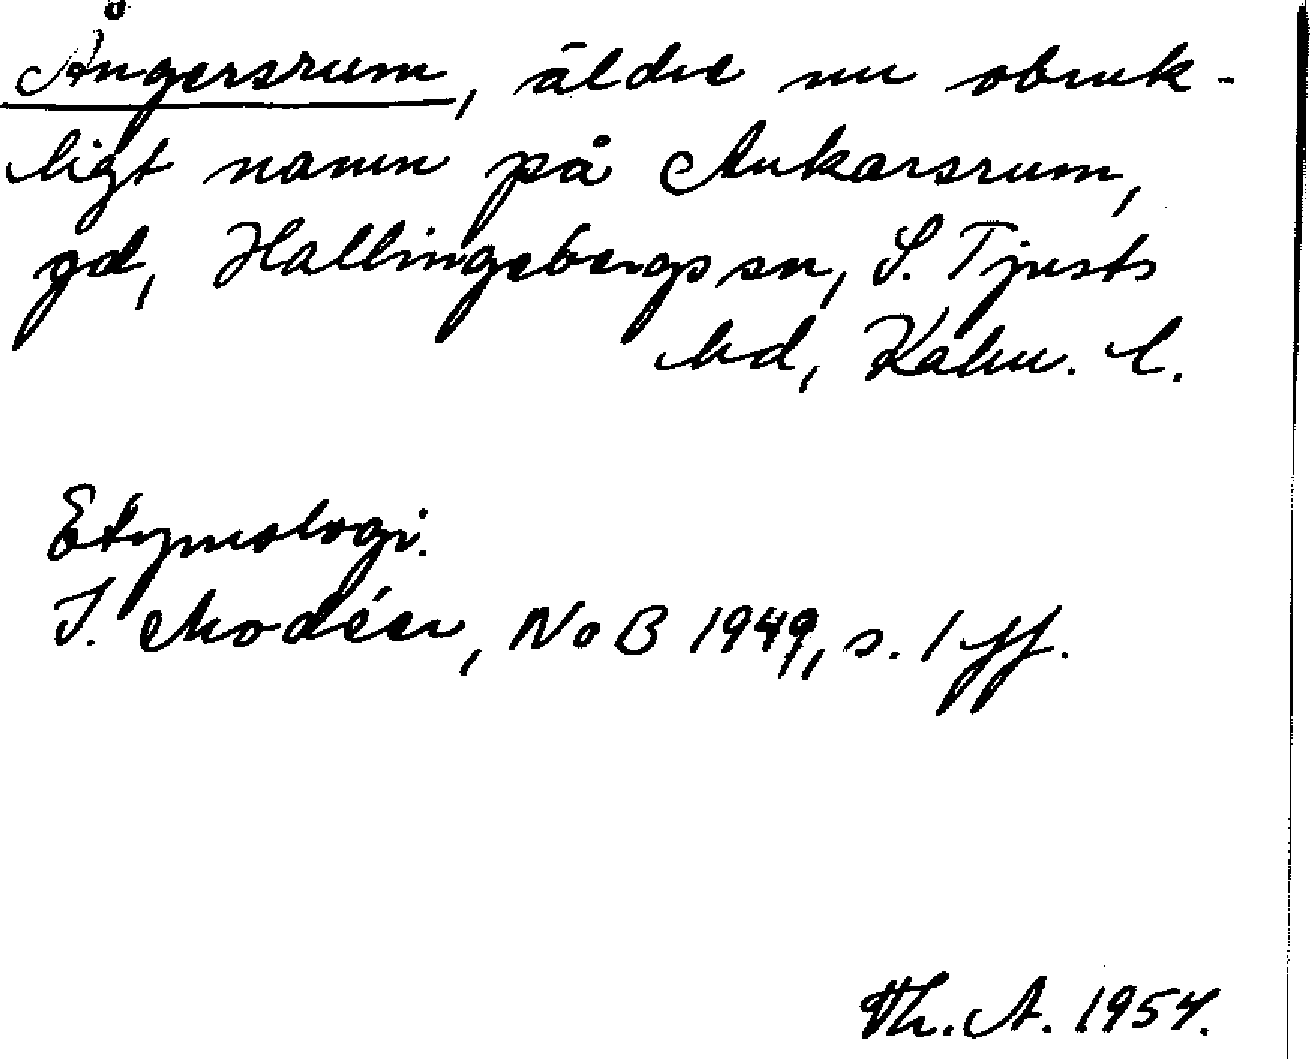 Ångersrum, äldre nu obruk-
ligt namn på Ankarsrum,
gd, Hallingebergs sn, S. Tjusts
hd, Kalm. l.
Etymologi.
I. Modéer, NoB 1949, s. 1 ff.
Th. A. 1954.